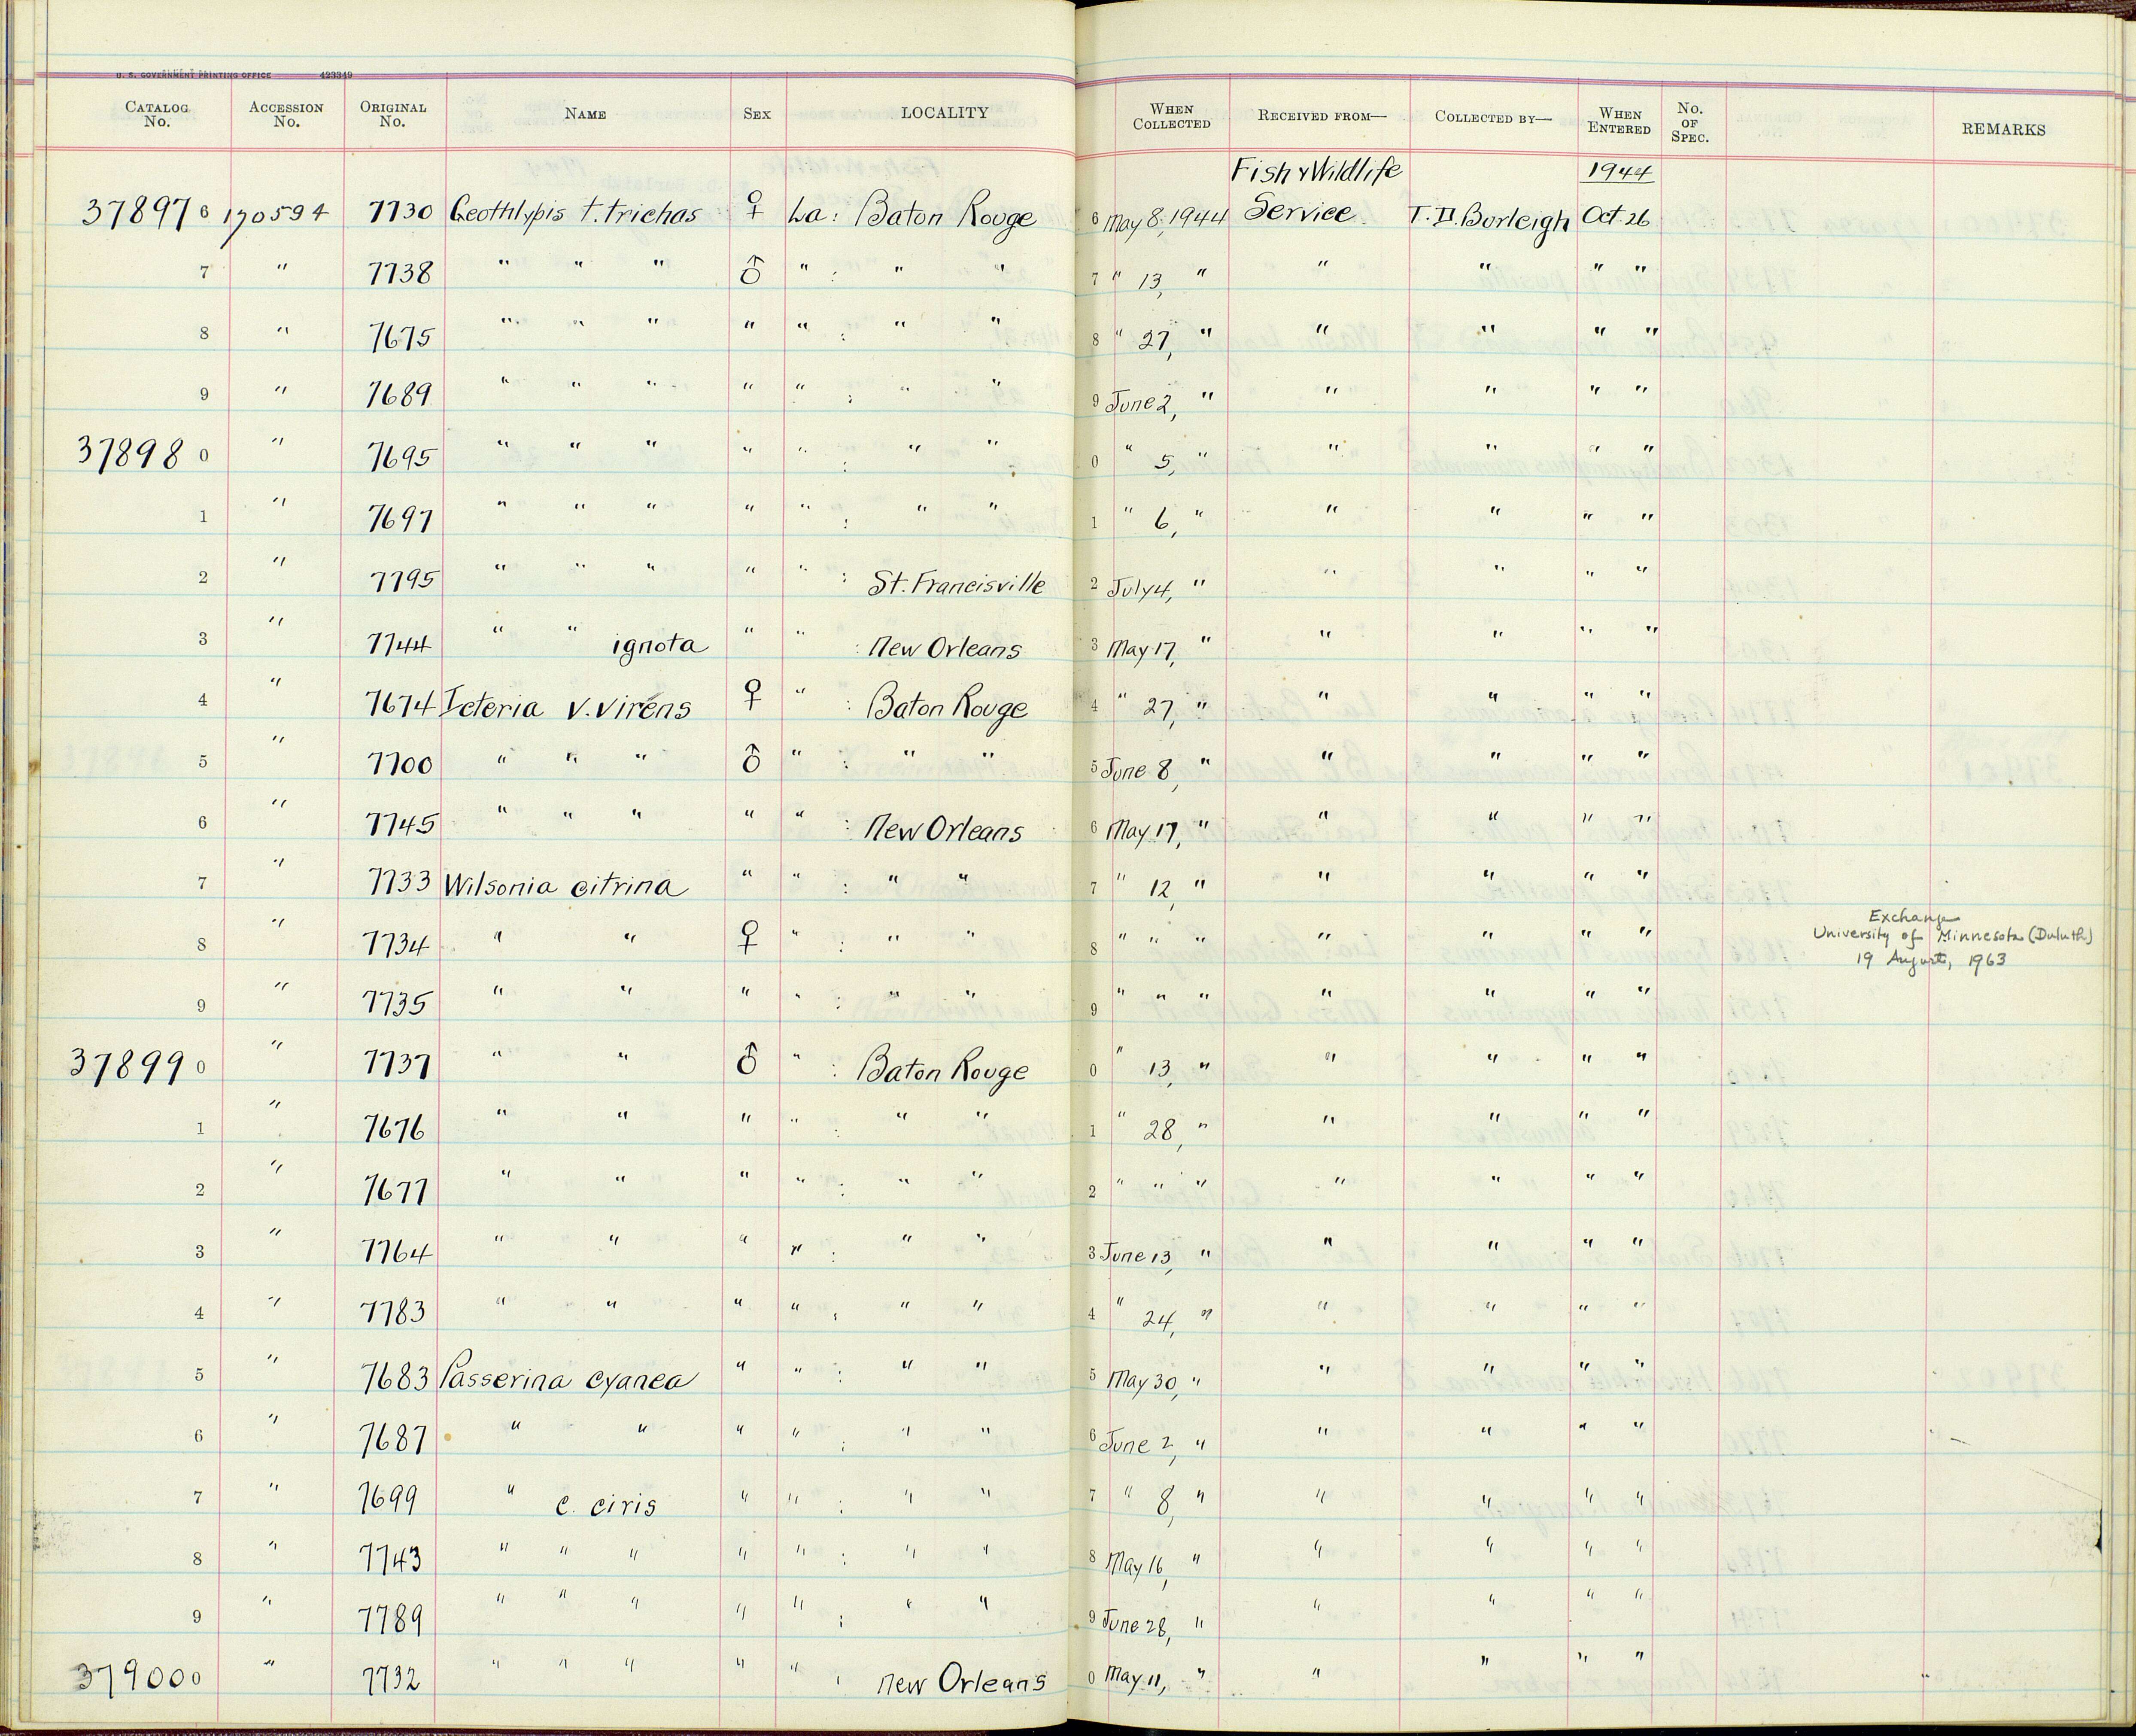 U. S. GOVERNMENT PRINTING OFFICE 423349
CATALOG No. ACCESSION No. ORIGINAL No. NAME SEX LOCALITY WHEN COLLECTED RECEIVED FROM— COLLECTED BY— WHEN ENTERED No. OF SPEC. REMARKS
Fish & Wildlife 1944
37897 6 170594 7730 Geothlypis t. trichas ♀ La: Baton Rouge 6 May 8, 1944 Service T.D. Burleigh Oct. 26
7 " 7738 " " " ♂ " : " " 7 " 13, " " " " "
8 " 7675 " " " " " : " " 8 " 27, " " " " "
9 " 7689 " " " " " : " " 9 June 2, " " " " "
37898 0 " 7695 " " " " " : " " 0 " 5, " " " " "
1 " 7697 " " " " " : " " 1 " 6, " " " " "
2 " 7795 " " " " " : St. Francisville 2 July 4, " " " " "
3 " 7744 " " ignota " " : New Orleans 3 May 17, " " " " "
4 " 7674 Icteria v. virens ♀ " : Baton Rouge 4 " 27, " " " " "
5 " 7700 " " " ♂ " : " " 5 June 8, " " " " "
6 " 7745 " " " " " : New Orleans 6 May 17, " " " " "
7 " 7733 Wilsonia citrina " " : " " 7 " 12, " " " " "
8 " 7734 " " ♀ " : " " 8 " " " " " " " Exchange
University of Minnesota (Duluth)
19 August, 1963
9 " 7735 " " " " : " " 9 " " " " " " "
37899 0 " 7737 " " ♂ " : Baton Rouge 0 " 13, " " " " "
1 " 7676 " " " " : " " 1 " 28, " " " " "
2 " 7677 " " " " : " " 2 " " " " " " "
3 " 7764 " " " " : " " 3 June 13, " " " " "
4 " 7783 " " " " : " " 4 " 24, " " " " "
5 " 7683 Passerina cyanea " " : " " 5 May 30, " " " " "
6 " 7687 " " " " : " " 6 June 2, " " " " "
7 " 7699 " c. ciris " " : " " 7 " 8, " " " " "
8 " 7743 " " " " " : " " 8 May 16, " " " " "
9 " 7789 " " " " " : " " 9 June 28, " " " " "
37900 0 " 7732 " " " " " : New Orleans 0 May 11, " " " " "